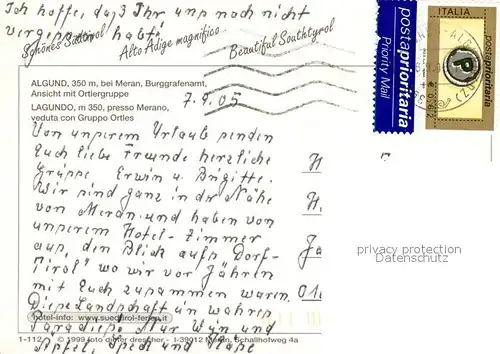 Ich hoffe, daß Ihr uns noch nicht
vergessen habt!
Schönes Südtirol
Alto Adige magnifico
Beautiful Southtyrol
postaprioritaria
Priority Mail
ITALIA
P
€ 0,62
ALGUND, 350 m, bei Meran, Burggrafenamt,
Ansicht mit Ortlergruppe
LAGUNDO, m 350, presso Merano,
veduta con Gruppo Ortles
7.9.05
Von unserem Urlaub senden
Euch liebe Freunde herzliche
Grüsse Erwin u. Brigitte.
Wir sind ganz in der Nähe
von Meran und haben von
unserem Hotel-Zimmer
aus, den Blick aufs „Dorf-
Tirol" wo wir vor Jahren
mit Euch zusammen waren.
Diese Landschaft ein wahres
Paradies. Nur Wein und
Äpfel, Speck und Nähe
privacy protection
Datenschutz
hotel-info: www.suedtirol-ferien.it
1-112
© 1999 foto dieter drescher - I-39012 Meran, Schallhofweg 4a